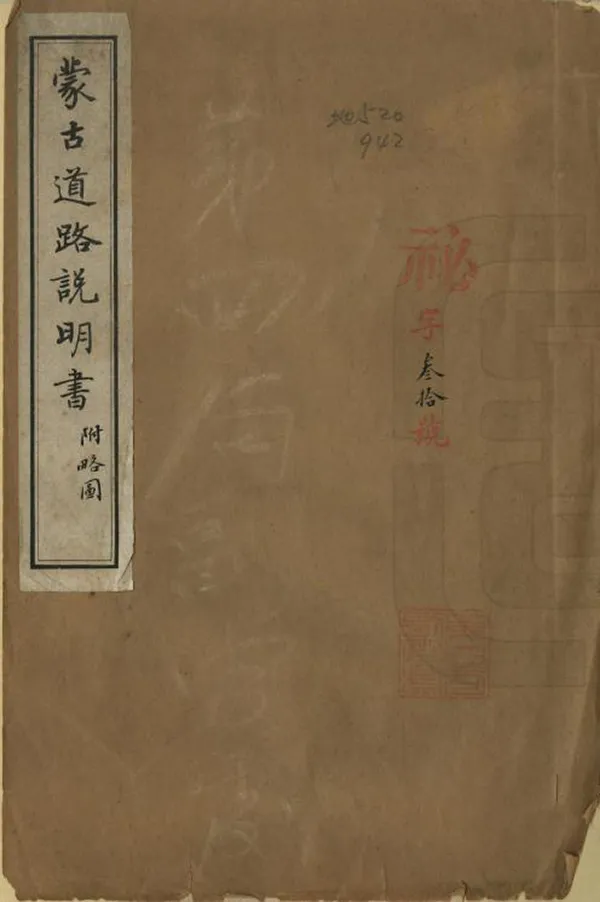 蒙古道路説明書
附略圖
地520
942
秘字叁拾號